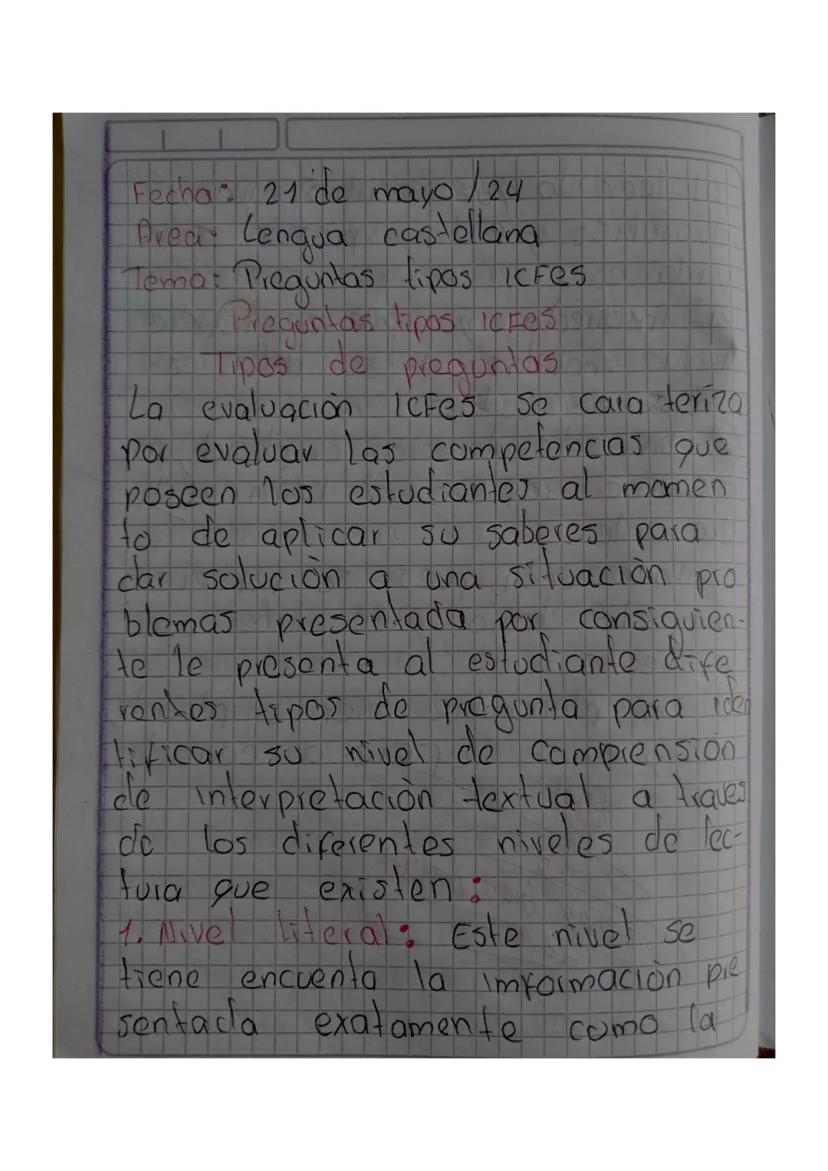 Fecha: 21 de mayo /24
Area: Lengua castellana
Tema: Preguntas tipos ICFes
Preguntas tipos ICFes
Tipos de preguntas
La evaluación ICFes se cara teriza
por evaluar las competencias que
poseen los estudiantes al momen
to de aplicar su saberes para
dar solución a una situación pro
blemas presentada por consiguien-
te le presenta al estudiante dife
rentes tipos de pregunta para iden
tificar su nivel de comprensión
de interpretación textual a traves
de los diferentes niveles de lec-
tura que existen:
1. Nivel literal: Este nivel se
tiene encuenta la imformación pre
sentada exatamente como la